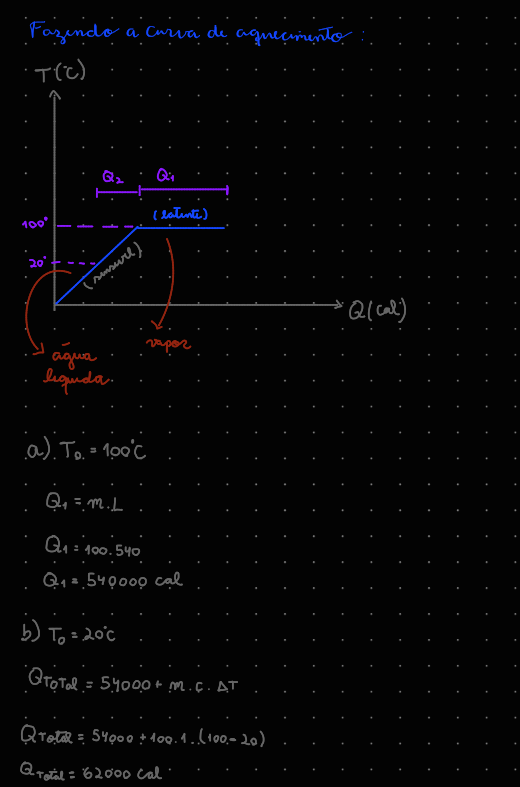 Fazendo a curva de aquecimento:
T(°C)
Q₂ Q₁
(latente)
100°
20°
(sensível)
Q(cal)
água
líquida
vapor
a) T₀ = 100°C
Q₁ = m.L
Q₁ = 100.540
Q₁ = 540000 cal
b) T₀ = 20°C
QTOTAL = 54000 + m.c.ΔT
QTotal = 54000 + 100.1.(100-20)
QTotal = 62000 cal